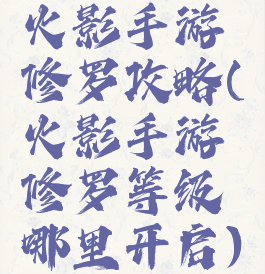 火影手游
修罗攻略(
火影手游
修罗等级
哪里开启)